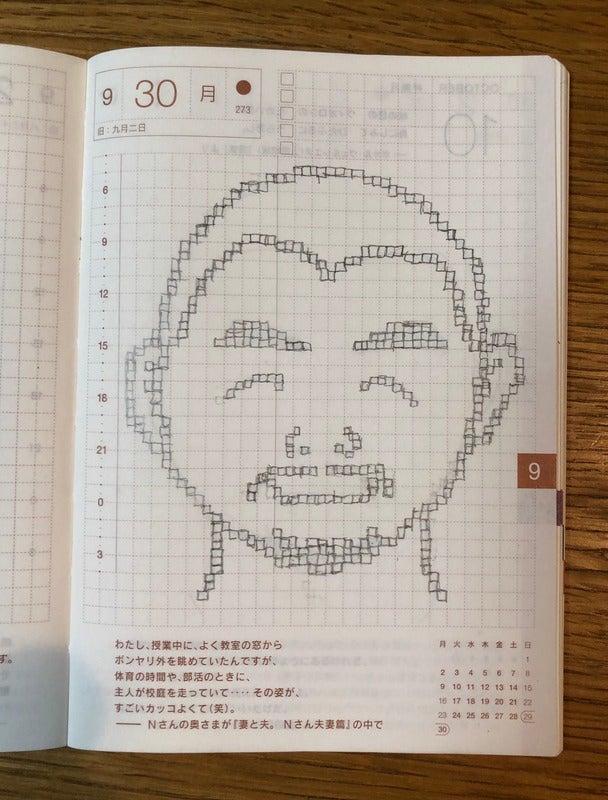 9 30 月
273
旧:九月二日
6
9
12
15
18
21
0
3
9
わたし、授業中に、よく教室の窓から
ボンヤリ外を眺めていたんですが、
体育の時間や、部活のときに、
主人が校庭を走っていて‥‥その姿が、
すごいカッコよくて(笑)。
―― Nさんの奥さまが『妻と夫。Nさん夫妻篇』の中で
月 火 水 木 金 土 日
1
2 3 4 5 6 7 8
9 10 11 12 13 14 15
16 17 18 19 20 21 22
23 24 25 26 27 28 29
30
す。